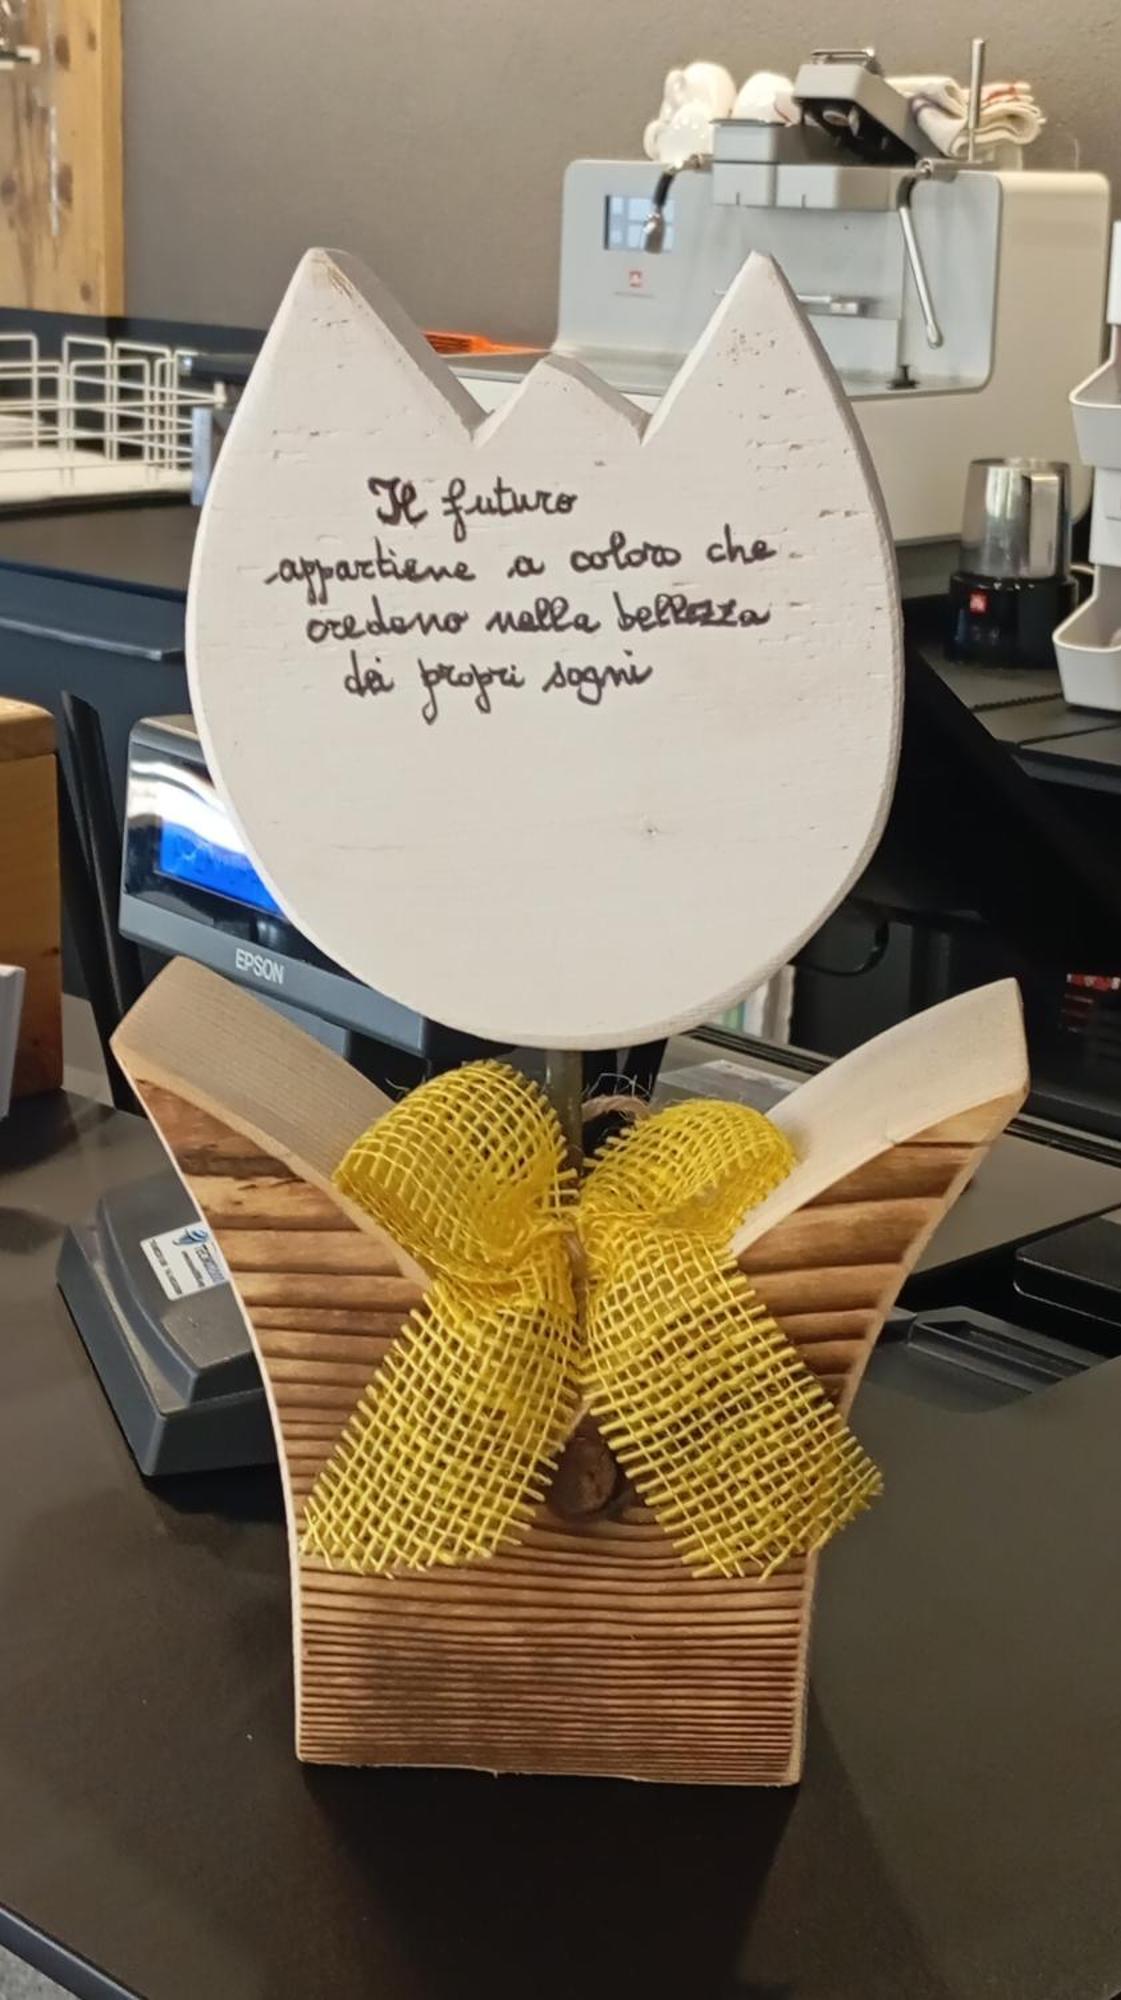 Il futuro
appartiene a coloro che
credono nella bellezza
dei propri sogni
EPSON